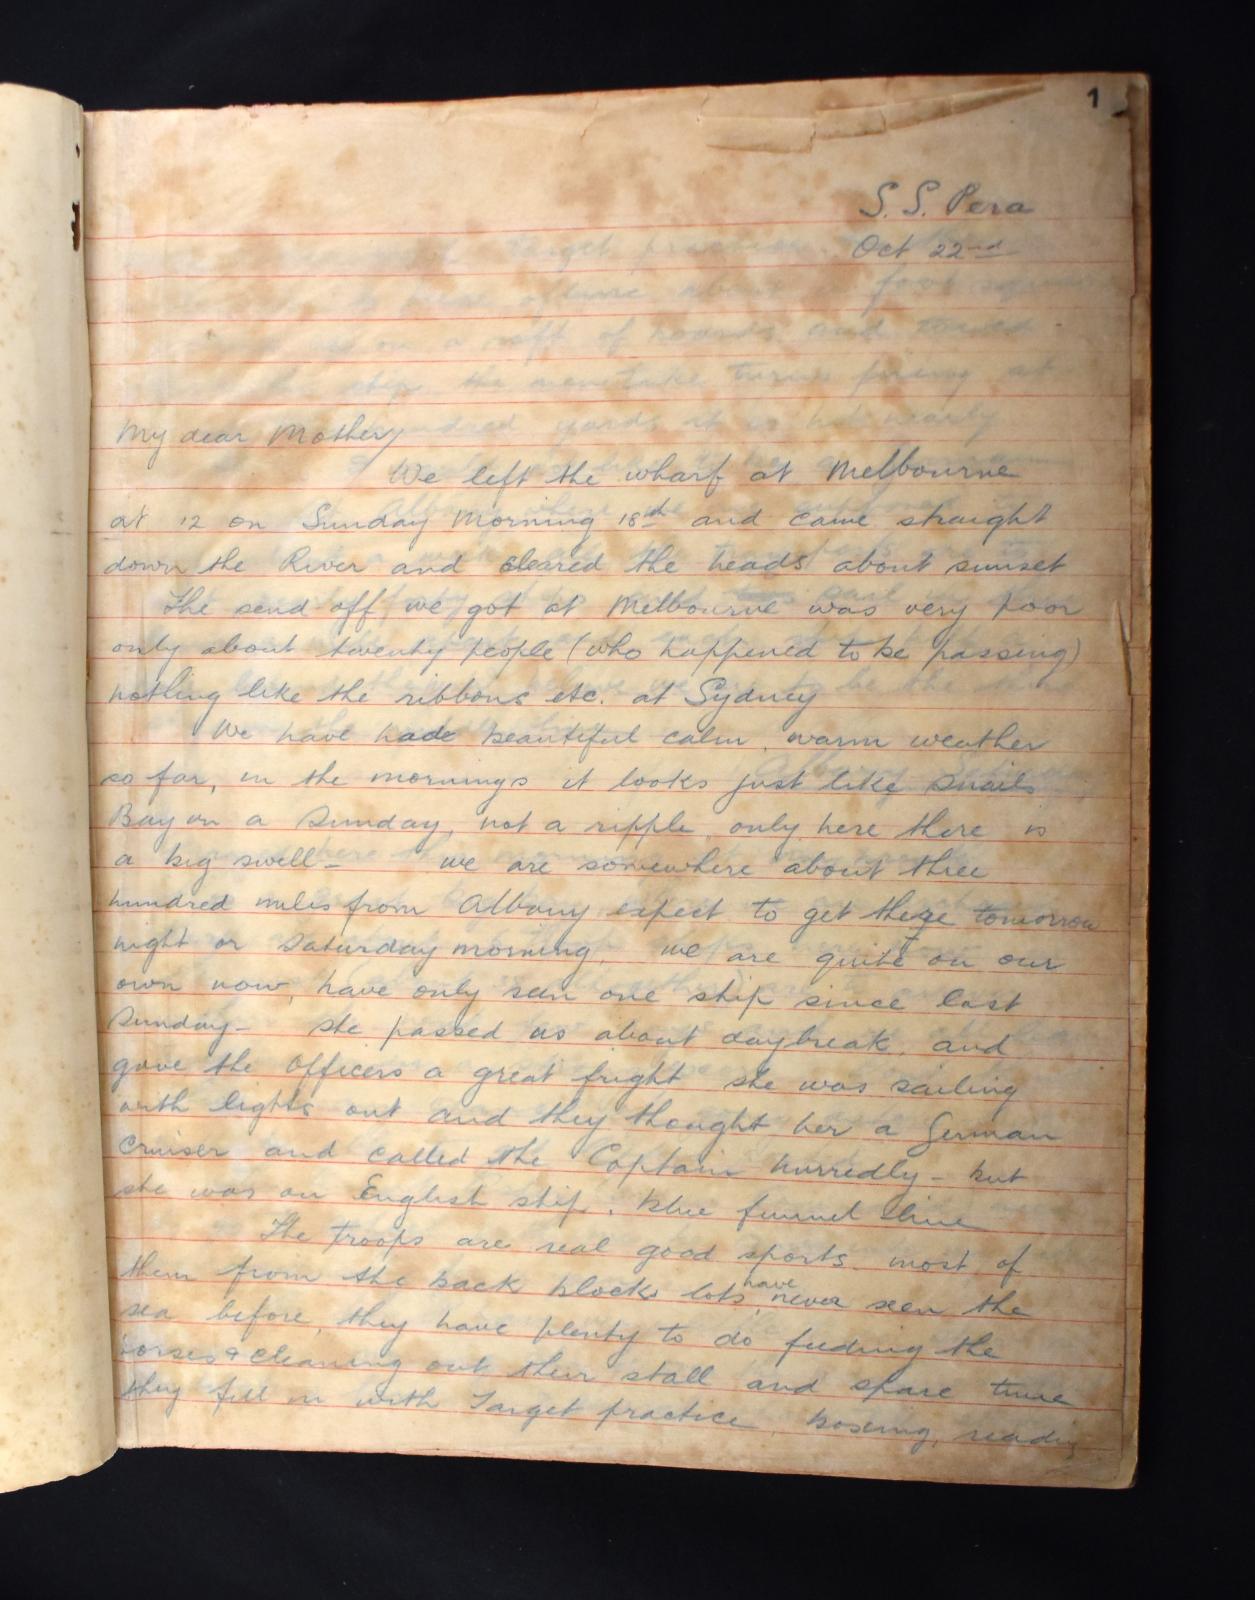 1
S. S. Pera
Oct 22nd
My dear Mother
We left the wharf at Melbourne
at 12 on Sunday Morning 18th and came straight
down the River and cleared the heads about sunset
The send off we got at Melbourne was very poor
only about twenty people (who happened to be passing)
nothing like the ribbons etc. at Sydney
We have had beautiful calm, warm weather
so far, in the mornings it looks just like Snails
Bay on a Sunday, not a ripple, only here there is
a big swell - we are somewhere about three
hundred miles from Albany expect to get there tomorrow
night or Saturday morning. we are quite on our
own now, have only seen one ship since last
Sunday - she passed us about daybreak, and
gave the Officers a great fright she was sailing
with lights out and they thought her a German
Cruiser and called the Captain hurredly - but
she was an English ship, blue funnel line
The troops are real good sports. most of
them from the back blocks lots have never seen the
sea before, they have plenty to do feeding the
horses & cleaning out their stall and spare time
they fill in with Target practice, boxing, reading